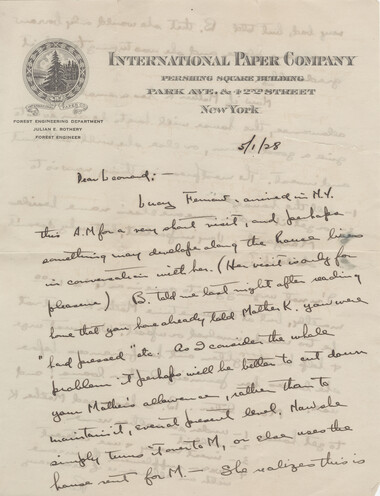 INTERNATIONAL PAPER COMPANY
PERSHING SQUARE BUILDING
PARK AVE. & 42ND STREET
New York
FOREST ENGINEERING DEPARTMENT
JULIAN E. ROTHERY
FOREST ENGINEER
5/1/28
Dear Leonard:-
Lucy arrived in N.Y.
this A.M for a very short visit, and perhaps
something may develope along the house lines
in conversation with her. (Her visit is only for
pleasure) B. told me last night after reading
have that you have already told Mother K. you were
"hard pressed" etc. As I consider the whole
problem it perhaps will be better to cut down
your Mother's allowance, rather than to
maintain it, even at present level. Now she
simply turns it over to M, or else uses the
house rent for M. - She realizes this is